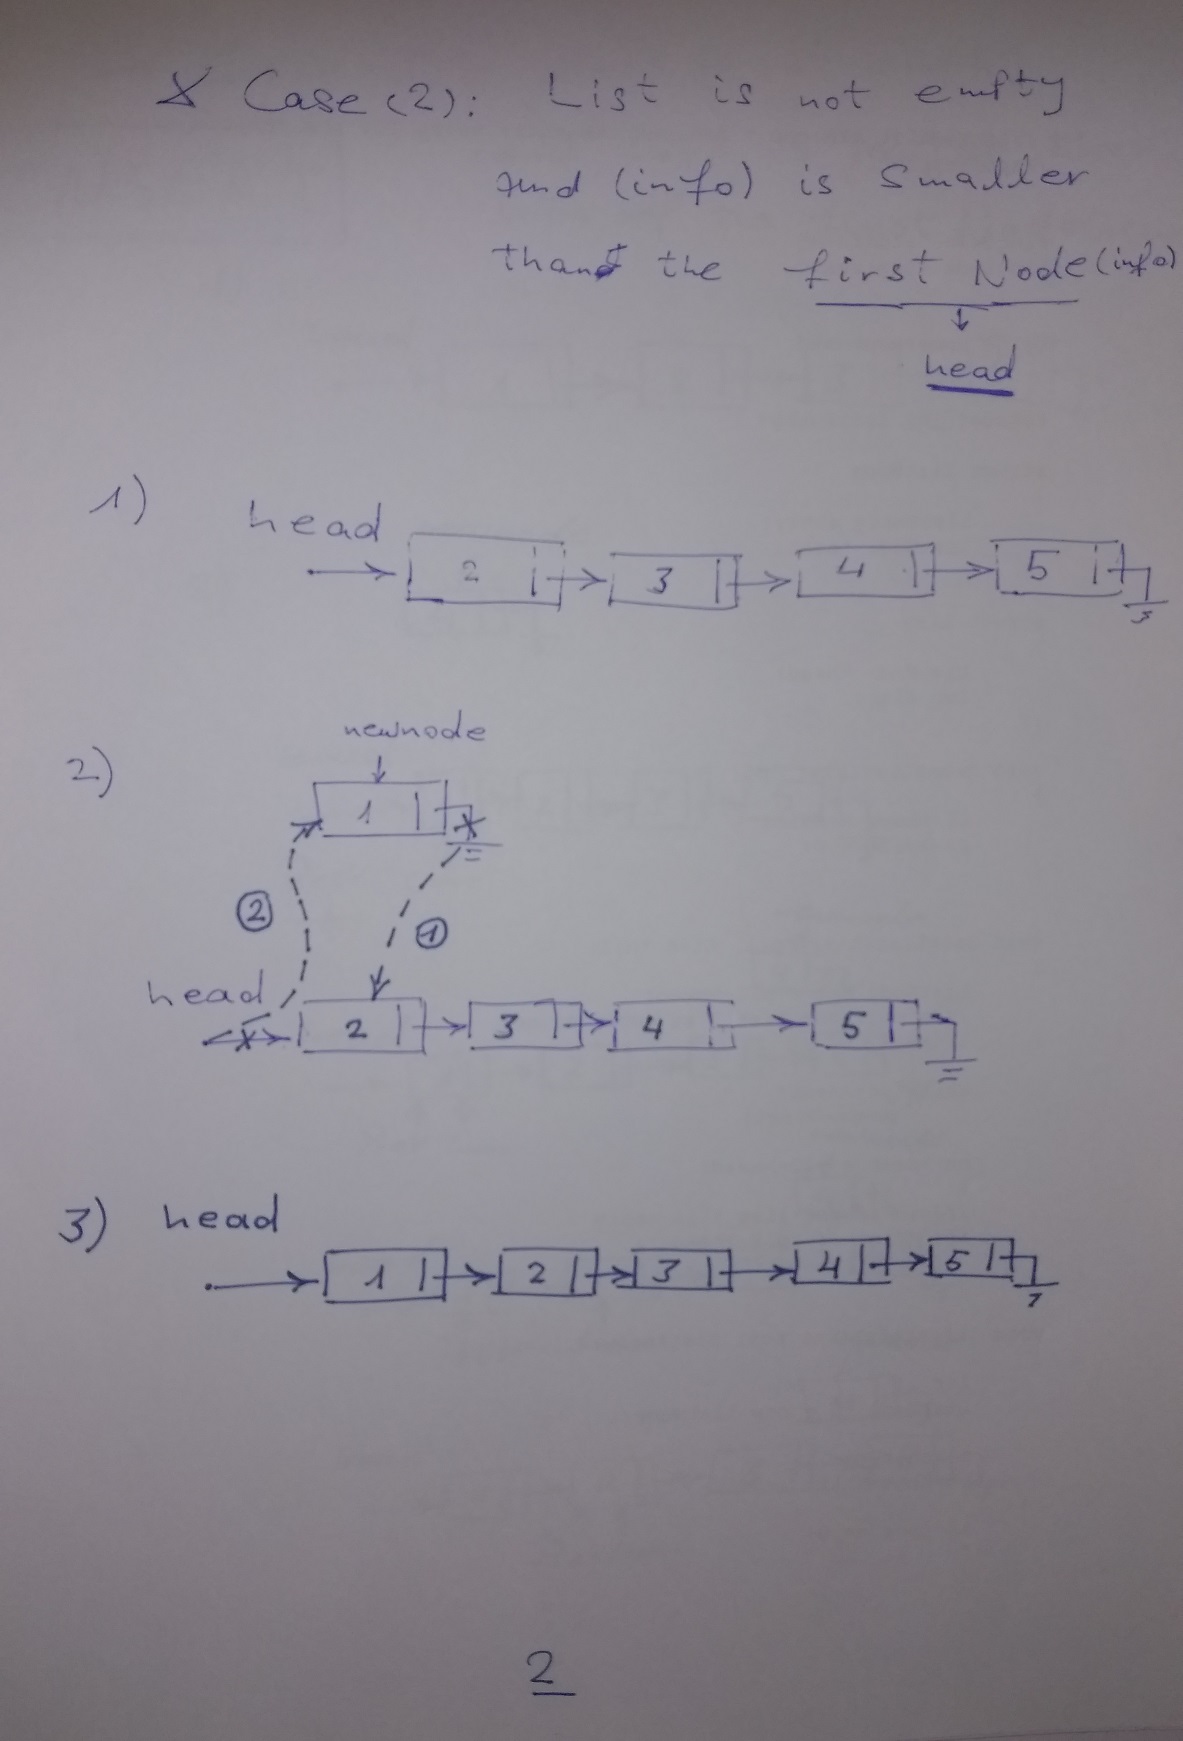 * Case (2): List is not empty
and (info) is smaller
than the first Node (info)
head
1) head
2 3 4 5
newnode
2)
1
2 1
head
2 3 4 5
3) head
1 2 3 4 5
2